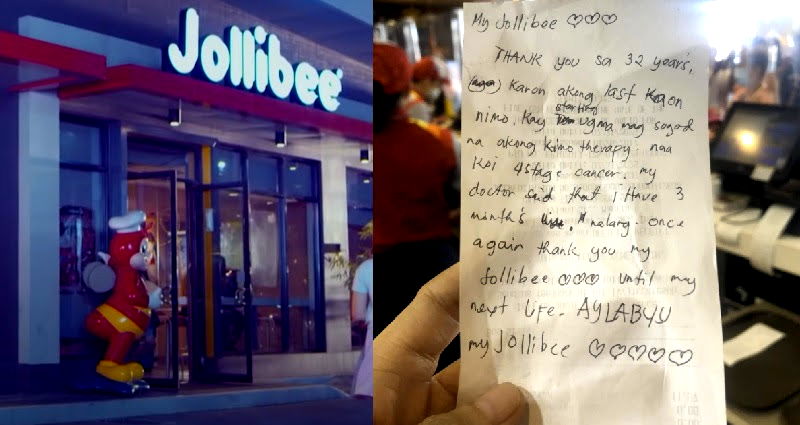 Jollibee
My Jollibee ♡♡♡
THANK you sa 32 years,
Karon akong last kaon
nimo. Kay starting ugma mag sogod
na akong kimo therapy. naa
koi 4stage cancer. my
doctor said that i Have 3
month's nalang. once
again thank you my
Jollibee ♡♡♡ until my
next life. AYLABYU
my Jollibee ♡♡♡♡♡